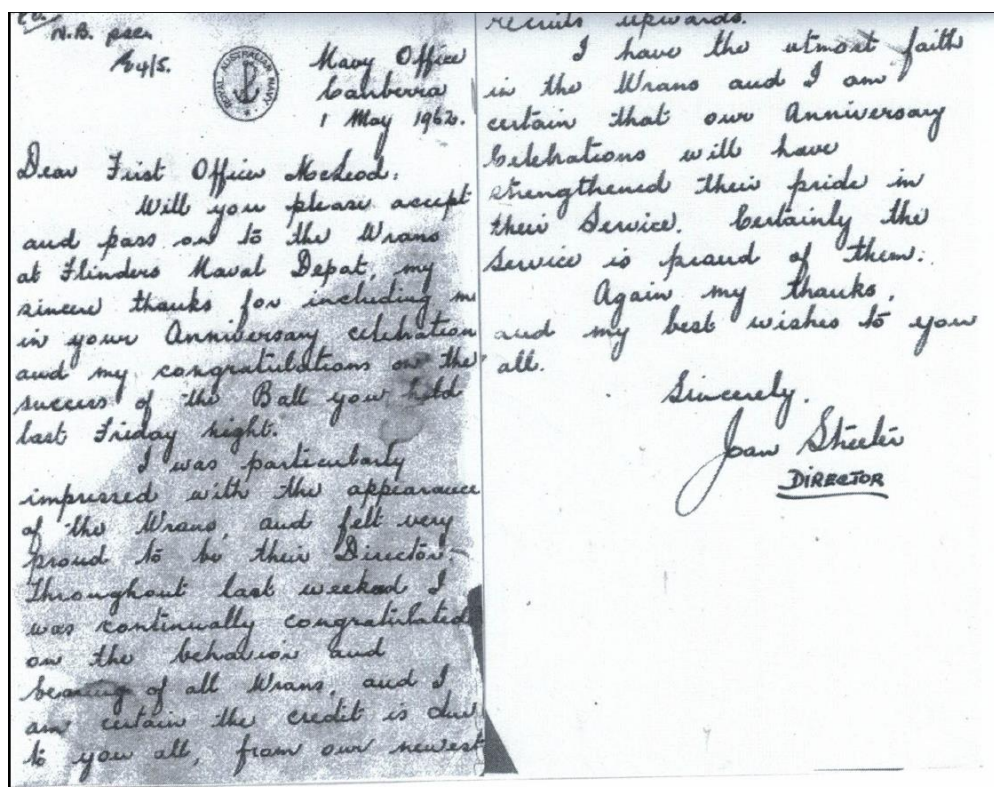 N.B. 
4/5.
ROYAL AUSTRALIAN NAVY
Navy Office
Canberra
1 May 1962.
Dear First Officer McLeod,
Will you please accept
and pass on to the Wrans
at Flinders Naval Depot, my
sincere thanks for including m
in your Anniversary celebration
and my congratulations on the
success of the Ball you held
last Friday night.
I was particularly
impressed with the appearance
of the Wrans, and felt very
proud to be their Director.
Throughout last weekend I
was continually congratulated
on the behavior and
bearing of all Wrans, and I
am certain the credit is due
to you all, from our newest
recruits upwards.
I have the utmost faith
in the Wrans and I am
certain that our Anniversary
Celebrations will have
strengthened their pride in
their Service. Certainly the
Service is proud of them.
Again my thanks,
and my best wishes to you
all.
Sincerely,
Joan Streeter
DIRECTOR